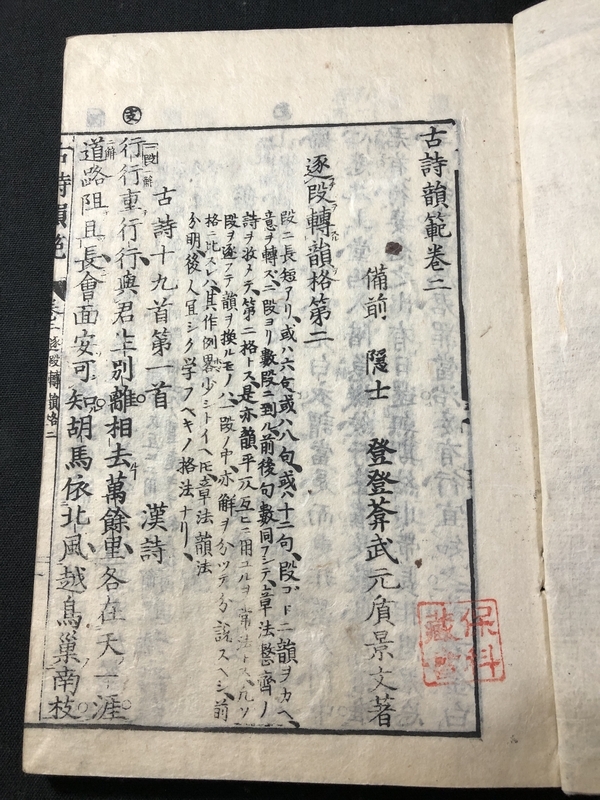 古詩韻範巻二
備前 隱士 登登菴武元質景文著
逐段轉韻格第二
段ニ長短アリ、或ハ六句或ハ八句、或ハ十二句、段ゴトニ韻ヲカヘ、
意ヲ轉ズ、二段ヨリ數段ニ到ル、前後句數同フシテ、章法整齊ノ
詩ヲ收メテ、第二格トス、是亦韻平仄互ヒニ用ユルヲ常法トス、凡ソ
段ヲ逐フテ韻ヲ換ルモノハ、一段ノ中、亦解ヲ分ツテ分説スヘシ、前
格ニ比スレハ、其作例畧少シトイヘ𪜈、章法韻法
分明、後人宜シク学フヘキノ格法ナリ、
古詩十九首第一首 漢詩
支
一段
一解
行行重行行、與君生別離、相去萬餘里、各在天一涯
二解
道路阻且長、會面安可知、胡馬依北風、越鳥巢南枝
古詩韻範 巻二 逐段轉韻格二
保科
藏書